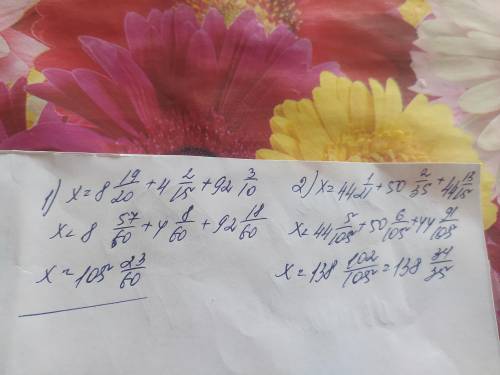 1) x = 8 19/20 + 4 2/15 + 92 3/10
x = 8 57/60 + 4 8/60 + 92 18/60
x = 105 23/60
2) x = 44 1/21 + 50 2/35 + 44 13/15
x = 44 5/105 + 50 6/105 + 44 91/105
x = 138 102/105 = 138 34/35